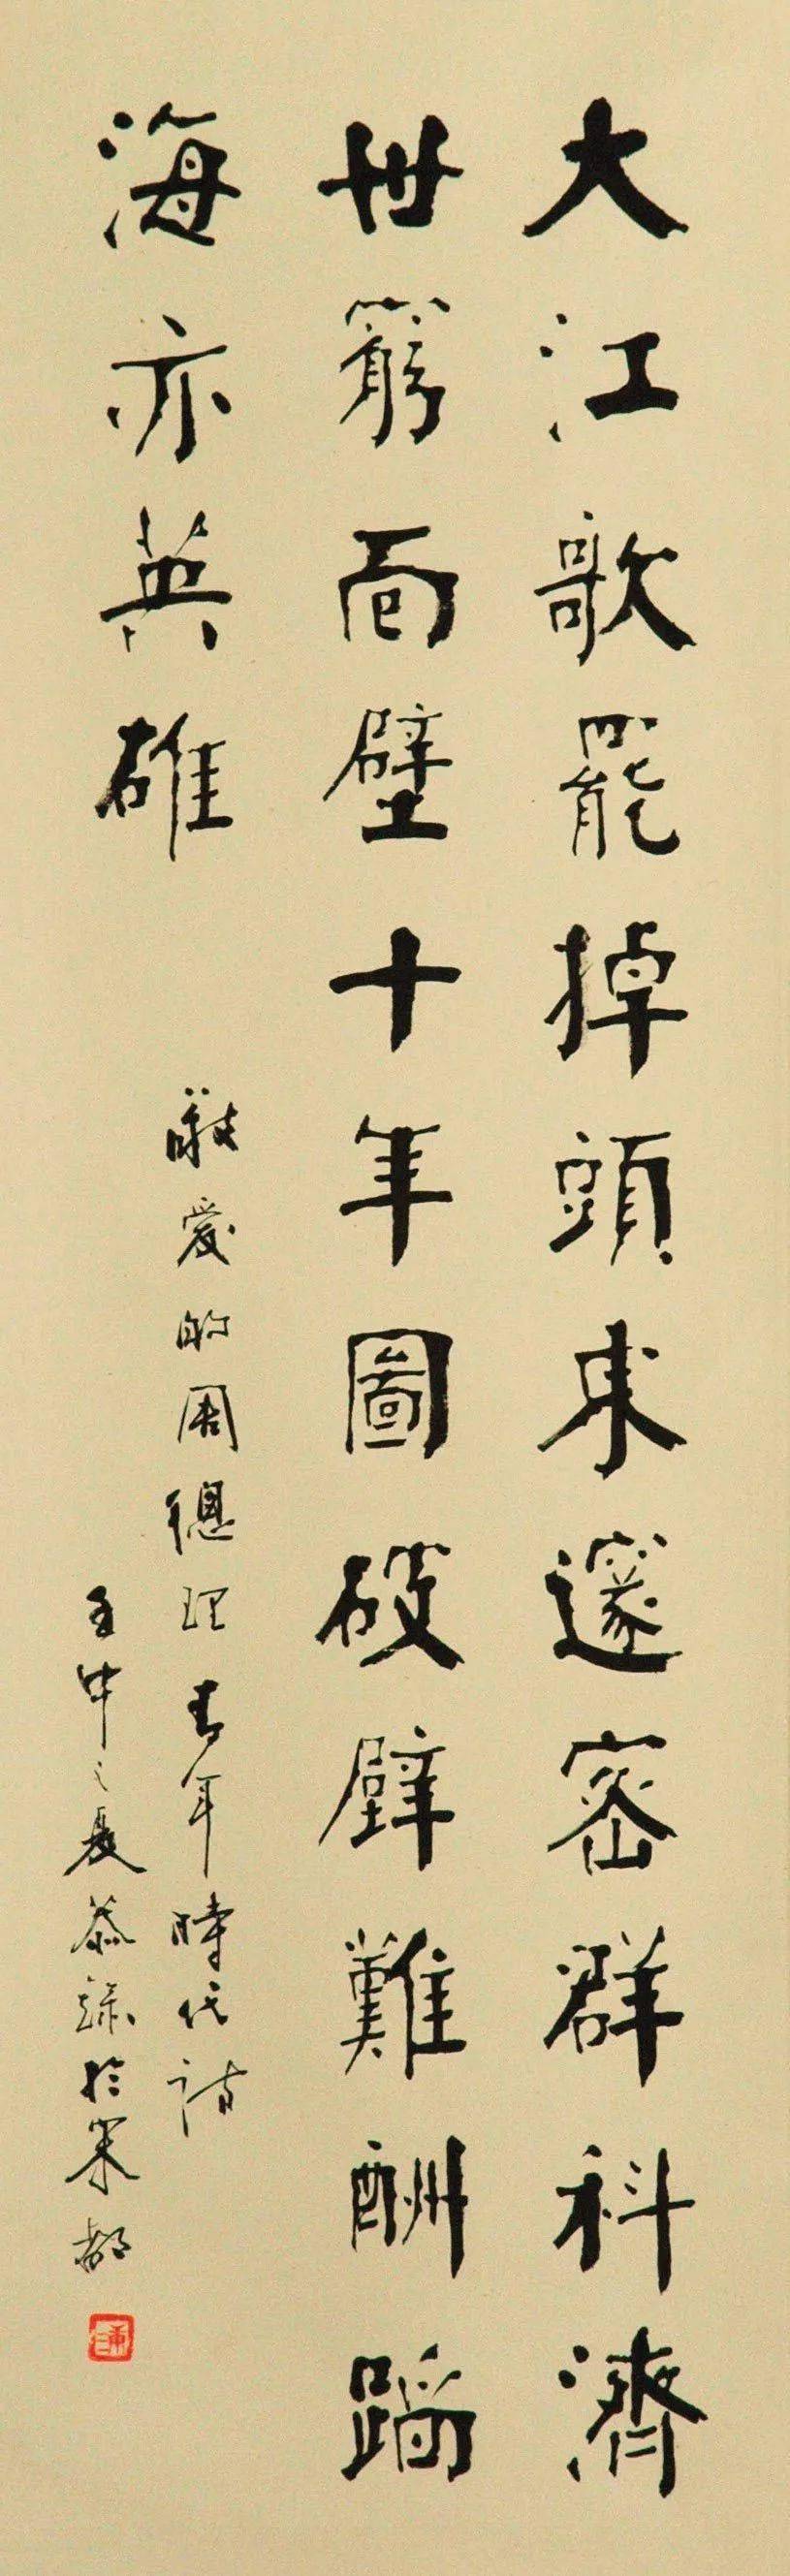 大江歌罷掉頭東邃密群科濟
世窮面壁十年圖破壁難酬蹈
海亦英雄
敬愛的周總理青年時代詩
壬申之夏恭錄於都